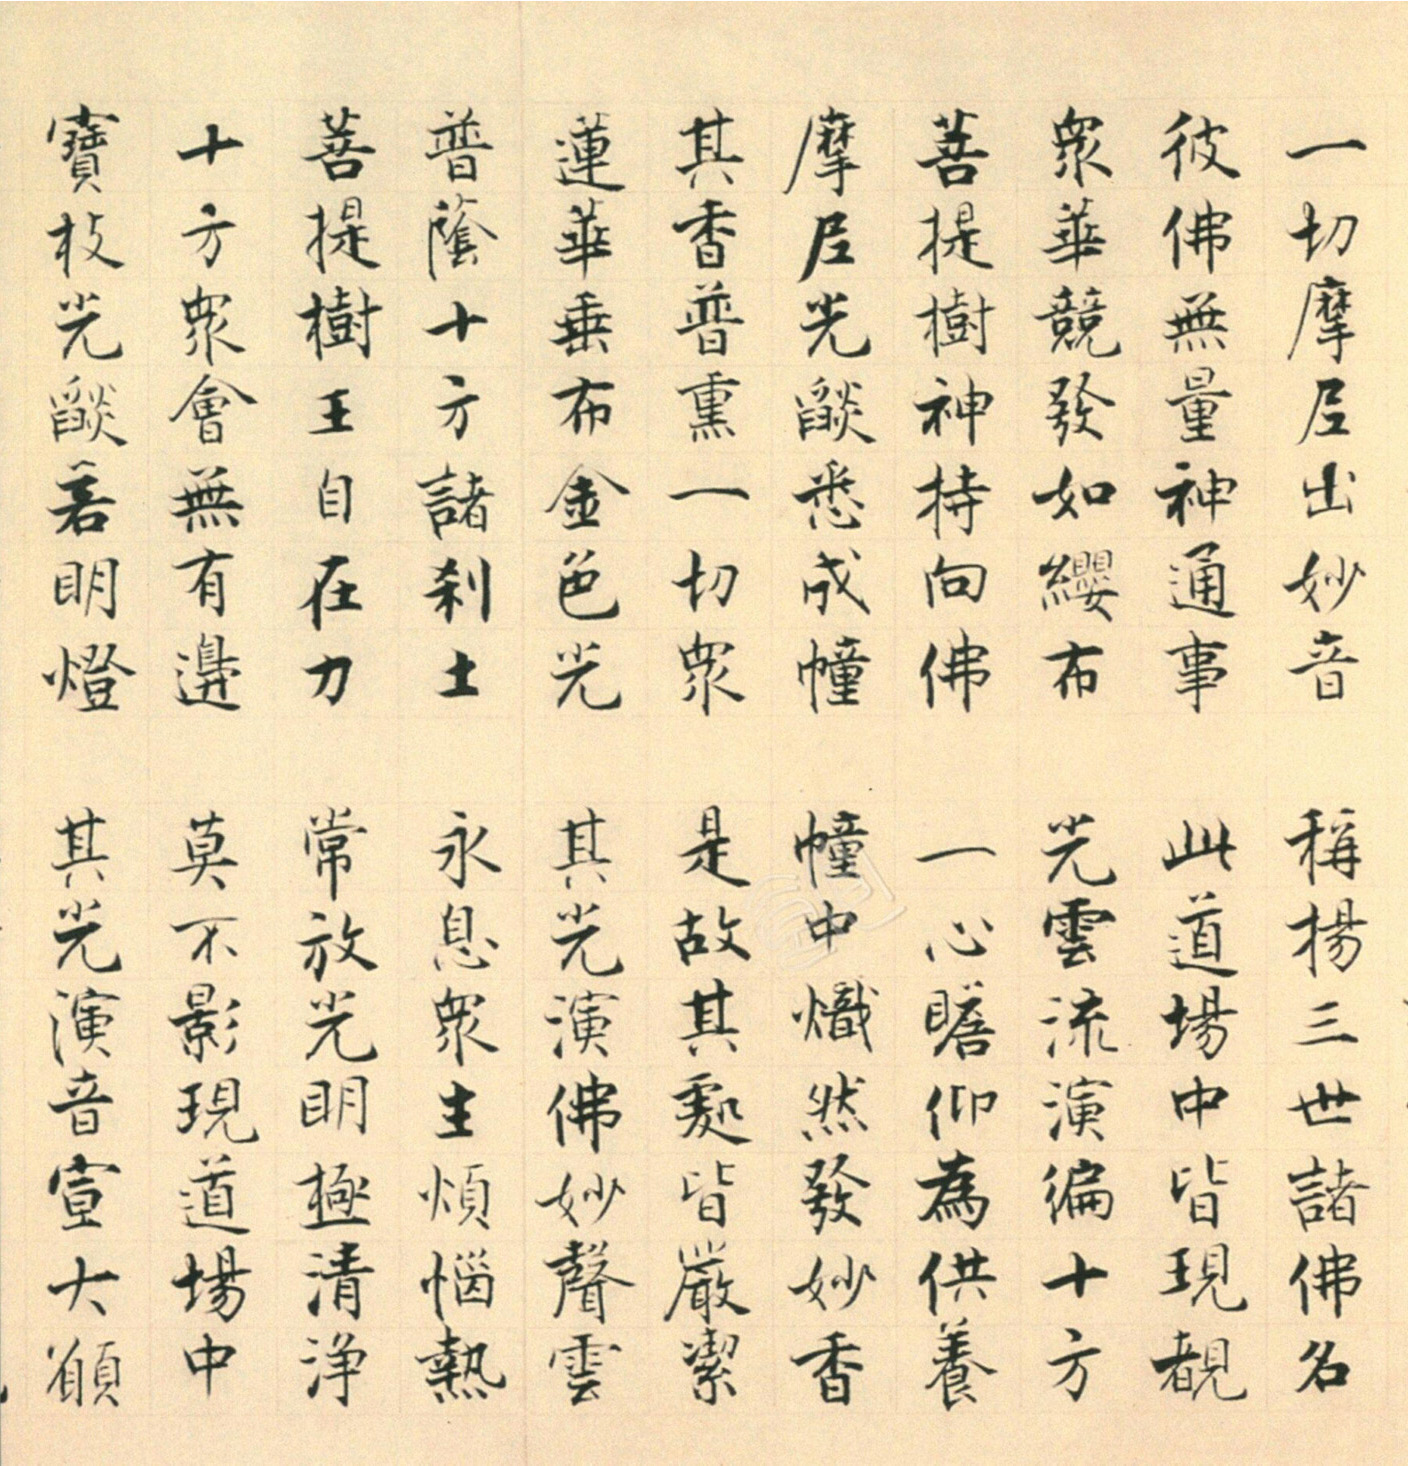 一切摩尼出妙音　稱揚三世諸佛名
彼佛無量神通事　此道場中皆現覩
衆華競發如纓布　光雲流演徧十方
菩提樹神持向佛　一心瞻仰為供養
摩尼光燄悉成幢　幢中熾然發妙香
其香普熏一切衆　是故其處皆嚴潔
蓮華垂布金色光　其光演佛妙聲雲
普蔭十方諸刹土　永息衆生煩惱熱
菩提樹王自在力　常放光明極清淨
十方衆會無有邊　莫不影現道場中
寶枝光燄若明燈　其光演音宣大願